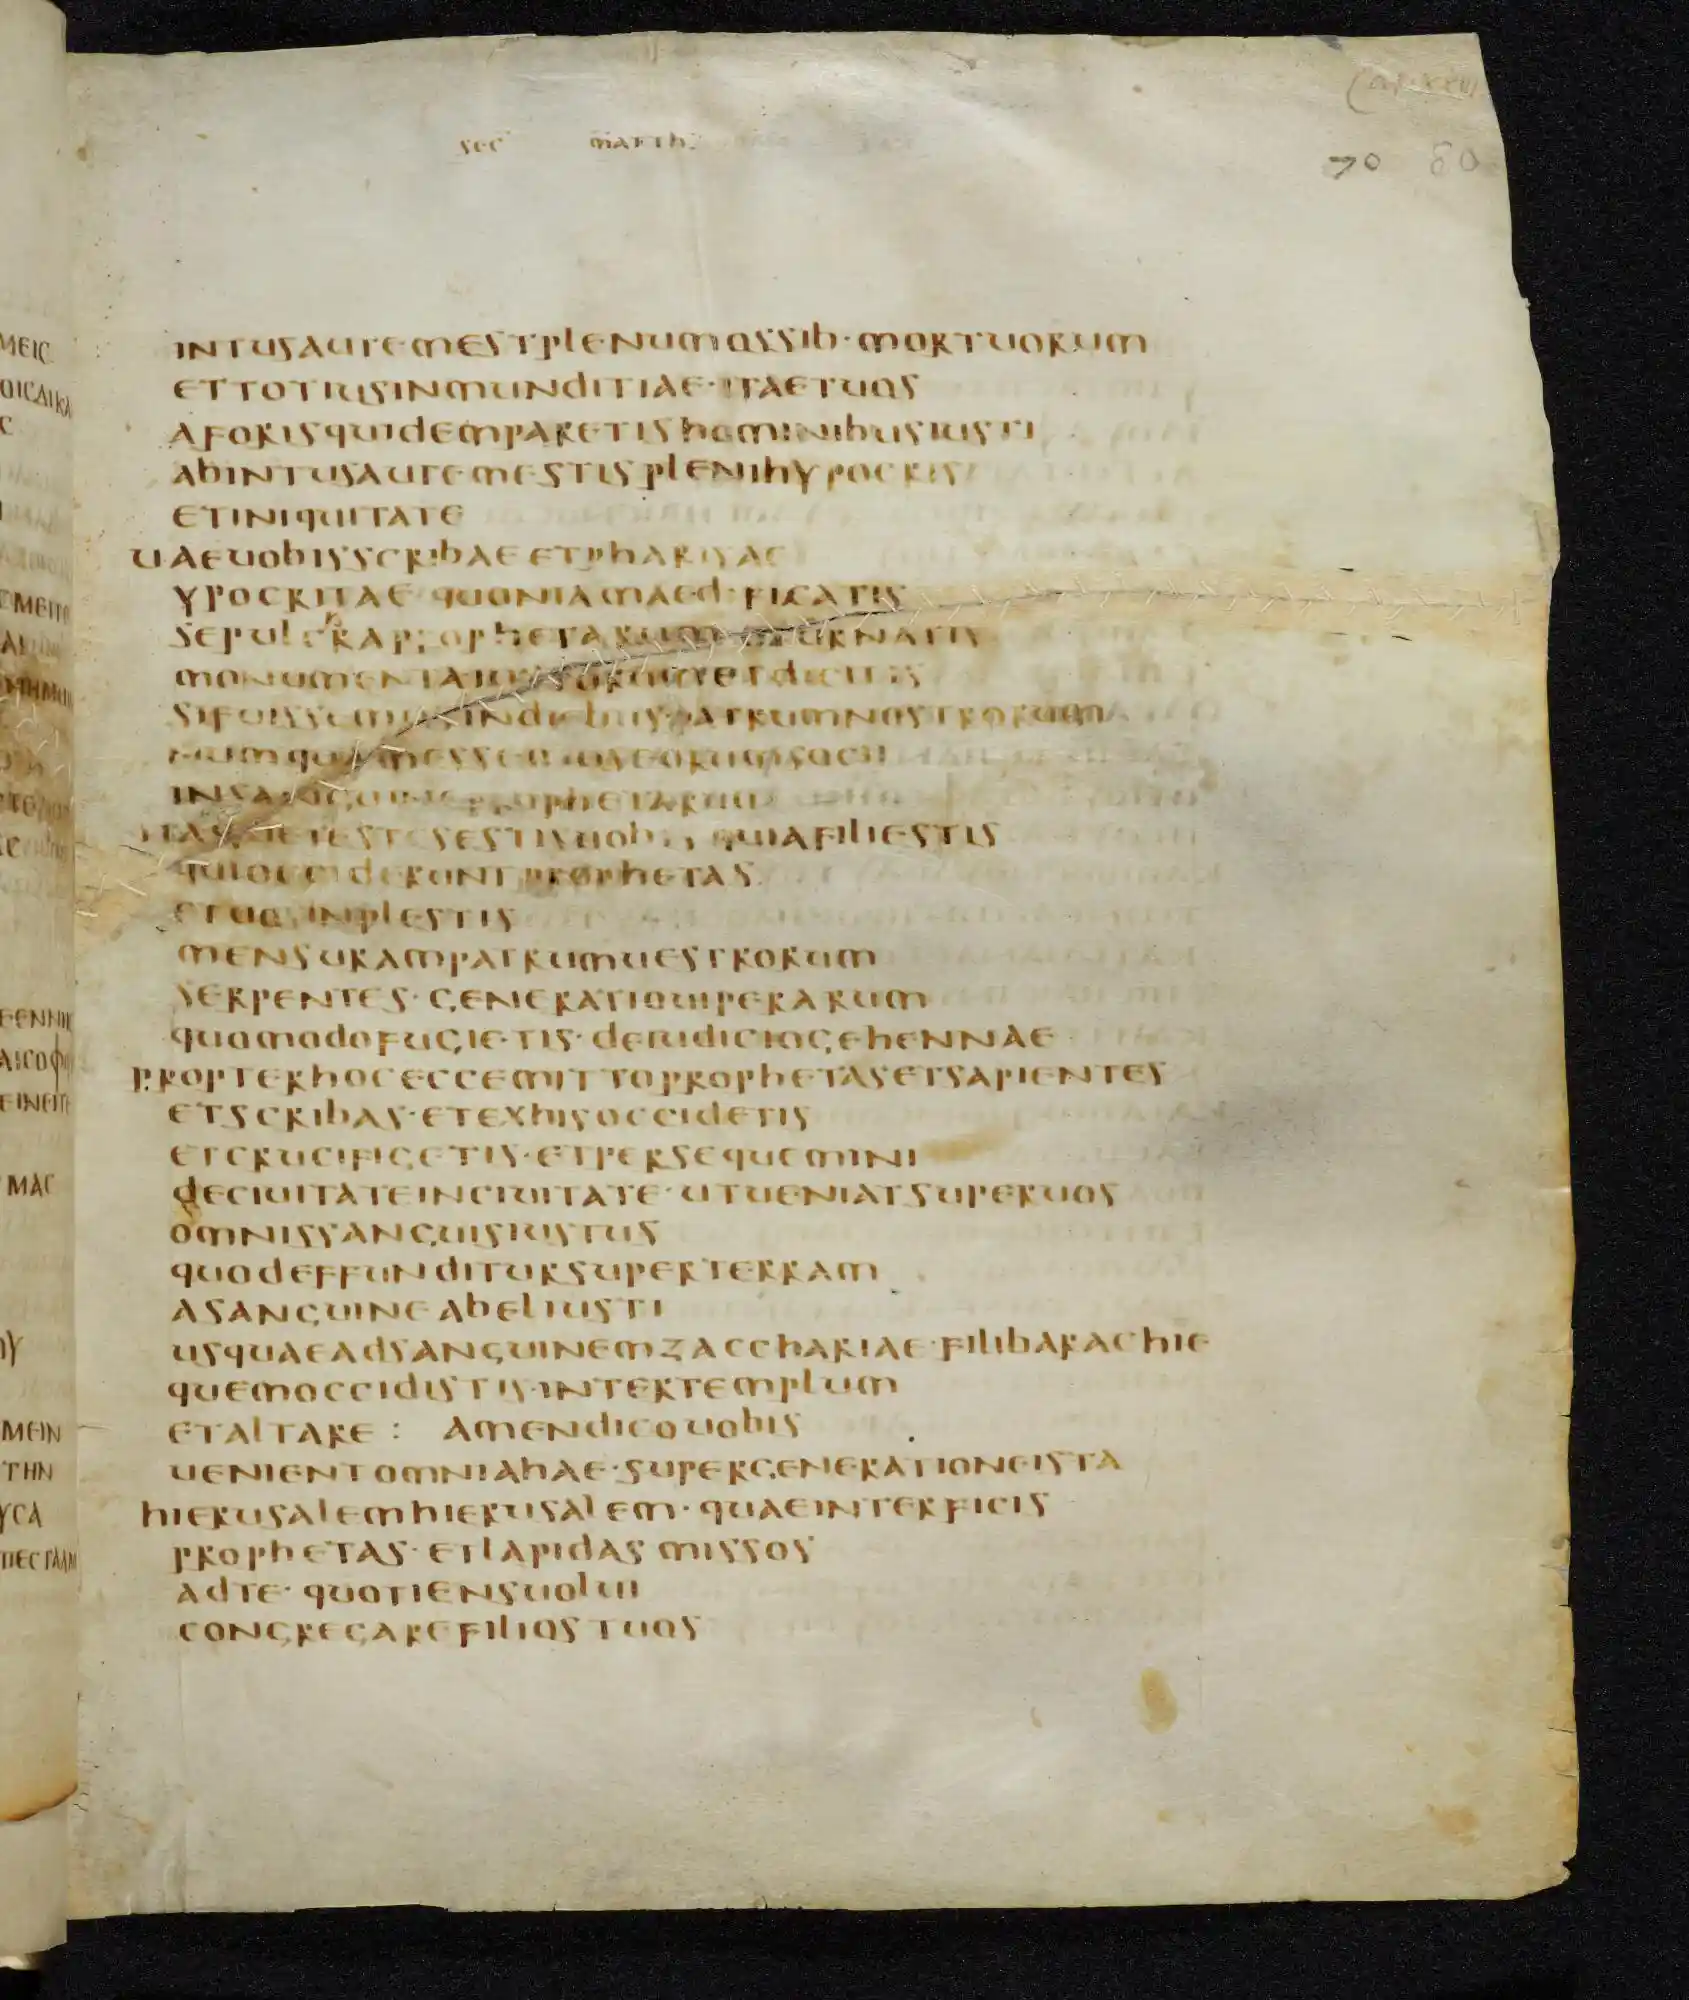 Cap. XXIII
sec matth
70 80
INTUSAUTEMESTPLENUMOSSIB·MORTUORUM
ETTOTIUSINMUNDITIAE·ITAETUOS
AFORISQUIDEMPARETISHOMINIBUSIUSTI
ABINTUSAUTEMESTISPLENIHYPOCRIS
ETINIQUITATE
UAEUOBISSCRIBAEETPHARISAE
YPOCRITAE·QUONIAMAEDIFICATIS
SEPULCRAPROPHETARUM ORNATIS
MONUMENTAIUSTORUMETDICITIS
SIFUISSEMUSINDIEBUSPATRUMNOSTRORUM
NUMQUAMESSEMUSEORUMSOCII
INSANGUINEPROPHETARUM
ITAQUETESTESESTISUOBIS QUIAFILIESTIS
QUIOCCIDERUNTPROPHETAS
ETUOSINPLESTIS
MENSURAMPATRUMUESTRORUM
SERPENTES·GENERATIOUIPERARUM
QUOMODOFUGIETIS·DEIUDICIOGEHENNAE
PROPTERHOCECCEMITTOPROPHETASETSAPIENTES
ETSCRIBAS·ETEXHISOCCIDETIS
ETCRUCIFIGETIS·ETPERSEQUEMINI
DECIUITATEINCIUITATE·UTUENIATSUPERUOS
OMNISSANGUISIUSTUS
QUODEFFUNDITURSUPERTERRAM
ASANGUINEABELIUSTI
USQUAEADSANGUINEMZACCHARIAE·FILIBARACHIE
QUEMOCCIDISTIS·INTERTEMPLUM
ETALTARE : AMENDICOUOBIS
UENIENTOMNIAHAE·SUPERGENERATIONEISTA
HIERUSALEMHIERUSALEM·QUAEINTERFICIS
PROPHETAS·ETLAPIDAS MISSOS
ADTE·QUOTIENSUOLUI
CONGREGAREFILIOSTUOS